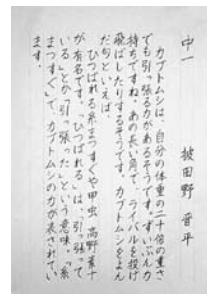 中一　　　被田野　晋平
　カブトムシは、自分の体重の二十倍の重さ
でも引っ張る力があるそうです。ずいぶん力
持ちですね。あの長い角で、ライバルを投げ
飛ばしたりするそうです。カブトムシをよん
だ句といえば、
　ひつぱれる糸まつすぐや甲虫　高野素十
が有名です。「ひつぱれる」は、「引っ張って
いる」とか「引っ張った」という意味。「糸
まつすぐ」で、カブトムシの力が表されてい
ます。